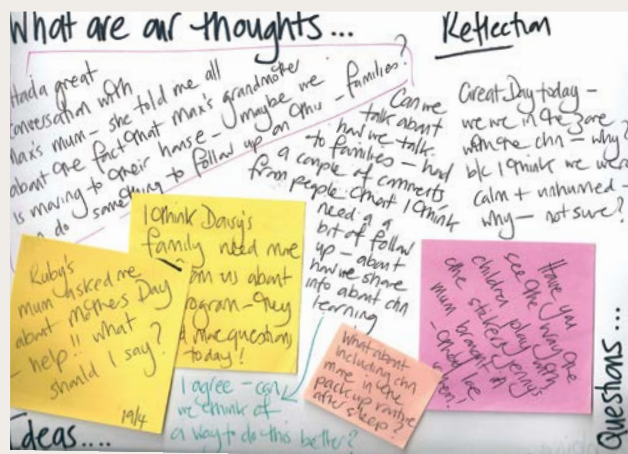 What are our thoughts ...
Reflection
Had a great
conversation with
Max's mum - she told me all
about the fact that Max's grandmother
is moving to their house - maybe we
can do something to follow up on this - families?
Can we
talk about
how we talk
to families - had
a couple of comments
from people that I think
need a
bit of follow
up - about
how we share
info about chn
learning
Great Day today -
we were in the zone
with the chn - why?
b/c I think we were
calm + unhurried -
why - not sure?
Ruby's
mum asked me
about Mothers Day
- help!! what
should I say?
19/4
I think Daisy's
family need more
from us about
program - they
had more questions
today!
I agree - can
we think of
a way to do this better?
What about
including chn
more in the
pack up routine
after sleep?
Have you
seen the way the
children play with
the stickers Jenny's
mum brought in
Ideas....
Questions ...